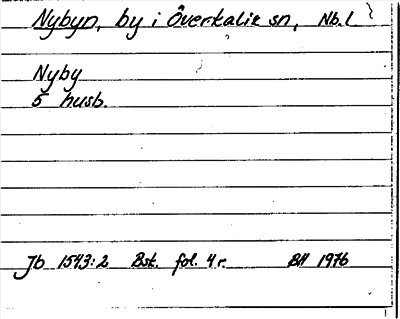 Nybyn, by i Överkalix sn, Nb.l
Nyby
5 husb.
Jb 1543:2 Bsk. fol. 4 r. BH 1976